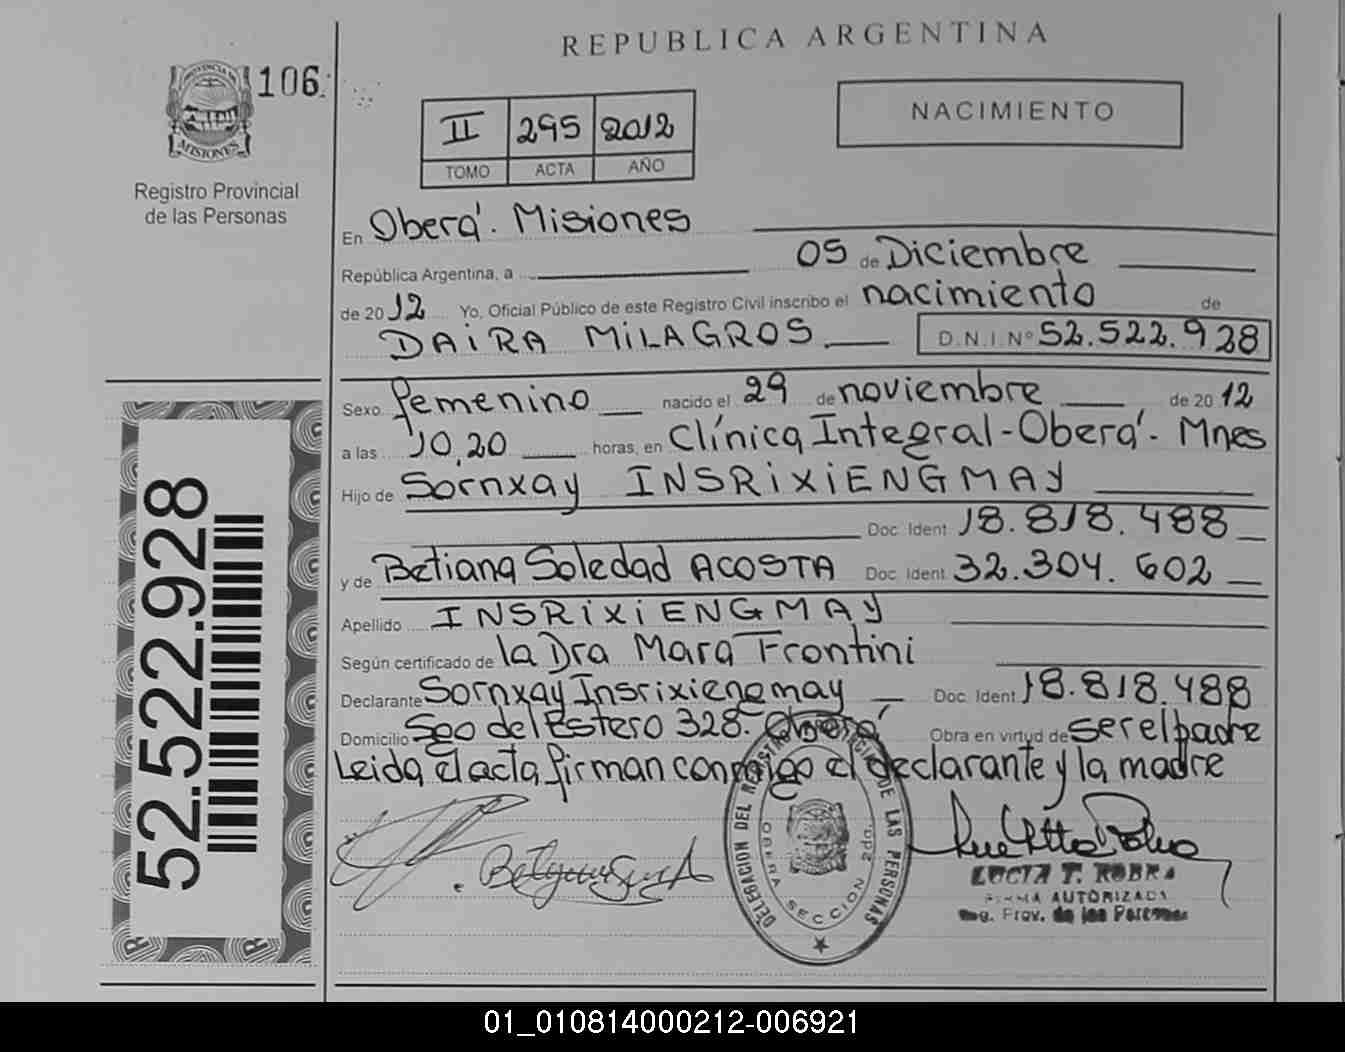 REPUBLICA ARGENTINA
106
PROVINCIA DE MISIONES
Registro Provincial
de las Personas
NACIMIENTO
II 295 2012
TOMO ACTA AÑO
En Oberá. Misiones
República Argentina, a 05 de Diciembre
de 2012 Yo, Oficial Público de este Registro Civil inscribo el nacimiento de
DAiRA MiLAGROS D.N.I. Nº 52.522.928
Sexo femenino nacido el 29 de noviembre de 2012
a las 10,20 horas, en Clínica Integral-Oberá. Mnes
Hijo de Sornxay INSRiXiENGMAY
Doc. Ident. 18.818.488
y de Betiana Soledad ACOSTA Doc. Ident. 32.304.602
Apellido INSRiXiENGMAY
Según certificado de la Dra Mara Frontini
Declarante Sornxay Insrixiengmay Doc. Ident. 18.818.488
Domicilio Sgo del Estero 328. Oberá Obra en virtud de ser el padre
Leida el acta, firman conmigo el declarante y la madre
52.522.928
DELEGACION DEL REGISTRO PROVINCIAL DE LAS PERSONAS
OBERA SECCION 2da.
LUCIA T. 
FIRMA AUTORIZADA
Reg. Prov. de las Personas
01_010814000212-006921